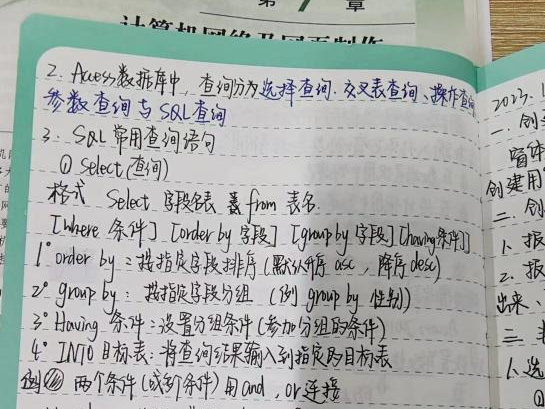 第7章
计算机网络及网页制作
2. Access数据库中，查询分为选择查询、交叉表查询、操作查询
参数查询与SQL查询
3. SQL常用查询语句
① Select(查询)
格式 Select 字段名表 from 表名
[Where 条件] [order by 字段] [group by 字段] [having条件]]
1° order by：按指定字段排序(默认升序 asc，降序 desc)
2° group by：按指定字段分组 (例 group by 性别)
3° Having 条件：设置分组条件(参加分组的条件)
4° INTO 目标表：将查询结果输入到指定的目标表
例 两个条件(或多个条件)用and，or连接
2023.1
一.创
窗体
创建用
二.创
1.报
2.报
出来、
三
1.选
①